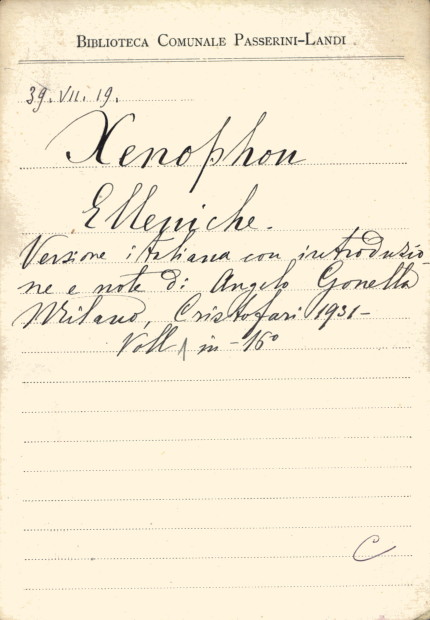 BIBLIOTECA COMUNALE PASSERINI-LANDI
39. VII. 19.
Xenophon
Elleniche.
Versione italiana con introduzio-
ne e note di Angelo Gonella
Milano, Cristofari 1931-
Voll 1 in-16°
C